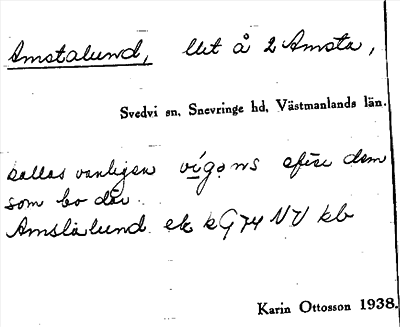 Amstalund, lht å 2 Amsta,
Svedvi sn. Snevringe hd. Västmanlands län.
kallas vanligen vígo̤ns efter dem
som bo där.
Amslalund ek kG74 NV kb
Karin Ottosson 1938.